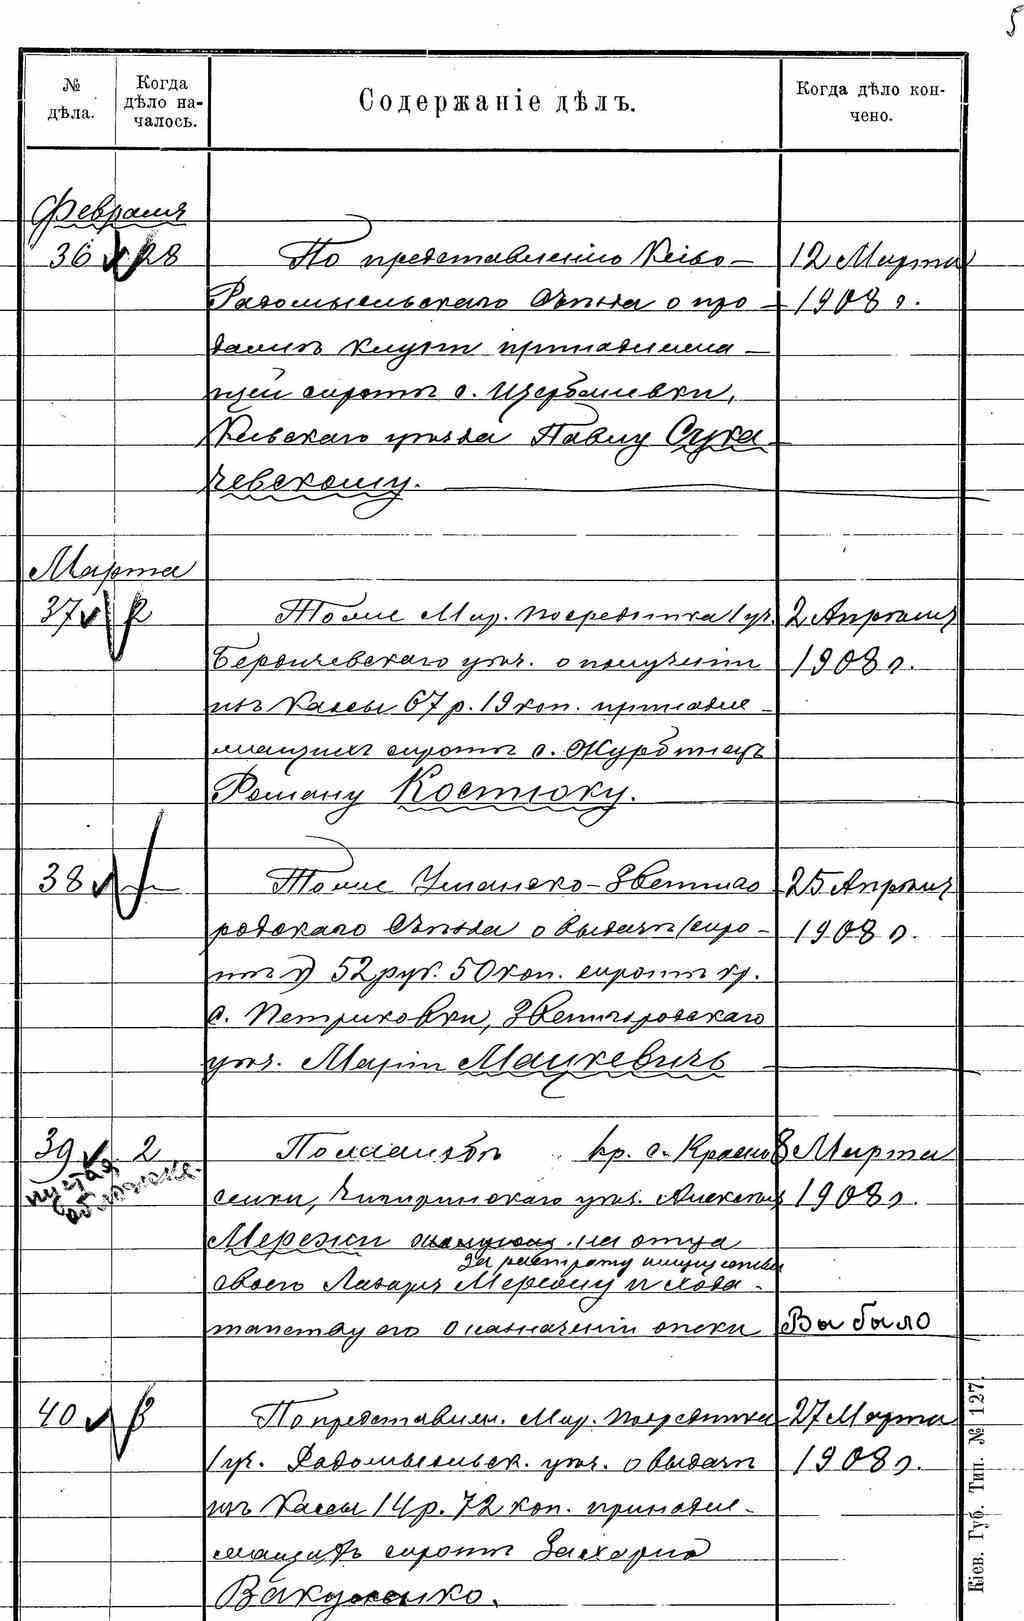 5
№ дѣла.
Когда дѣло началось.
Содержаніе дѣлъ.
Когда дѣло кончено.
Февраля
36 28 По представленію Кіево- 12 Марта
Радомысльскаго Съѣзда о про- 1908 г.
дажѣ
щей сиротѣ с. Щербаневки,
Кіевскаго уѣзда Павлу Сука-
чевскому.
Марта
37 2 Тоже Мир. Посредника 1 уч. 2 Апрѣля
Бердичевскаго уѣз. о полученіи 1908 г.
изъ Кассы 67 р. 19 коп. принадле-
жащихъ сиротѣ с. Журбинцъ
Роману Костюку.
38 — Тоже Уманско-Звениго 25 Апрѣля
родскаго Съѣзда о выдачѣ (сиро- 1908 г.
тѣ) 52 руб. 50 коп. сиротѣ кр.
с. Петриковки, Звенигородскаго
уѣз. Маріи Мацкевичъ
39 2 По жалобѣ кр. с. Красно 8 Марта
пустая обложка.
селки, Чигиринскаго уѣз. Алексѣя 1908 г.
Мережи на отца
за растрату имущества
своего Лазаря Мережу и хода-
тайству его о назначеніи опеки Выбыло
40 3 По представлен. Мир. Посредника 27 Марта
1 уч. Радомысльск. уѣз. о выдачѣ 1908 г.
изъ Кассы 14 р. 72 коп. принадле-
жащихъ сиротѣ Захарію
Вакуленко.
Кіев. Губ. Тип. № 127.